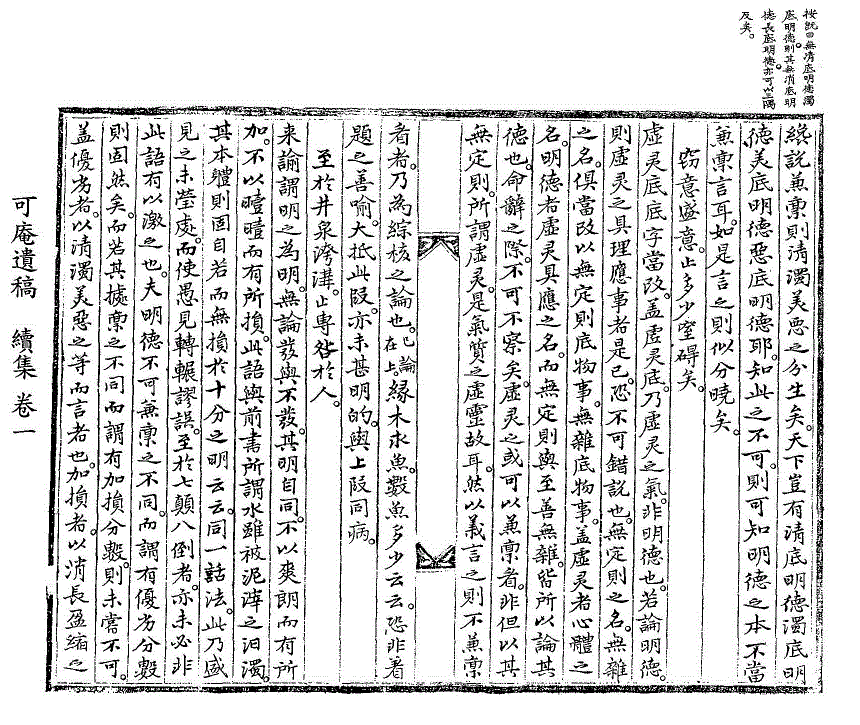 按既曰無淸底明德濁
底明德則其無消底明
德長底明德亦可以三隅
及矣
纔說兼稟則淸濁美惡之分生矣天下豈有淸底明德濁底明
德美底明德惡底明德耶知此之不可則可知明德之本不當
兼稟言耳如是言之則似分曉矣
竊意盛意止多少窒碍矣
虛灵底底字當改盖虛灵底乃虛灵之氣非明德也若論明德
則虛灵之具理應事者是已恐不可錯說也無定則之名無雜
之名俱當改以無定則底物事無雜底物事盖虛灵者心體之
名明德者虛灵具應之名而無定則與至善無雜皆所以論其
德也命辭之際不可不察矣虛灵之或可以兼稟者非但以其
無定則所謂虛灵是氣質之虛靈故耳然以義言之則不兼稟
看者乃為綜核之論也已論在上緣木求魚數魚多少云云恐非着
題之善喻大抵此段亦未甚明的與上段同病
至於井泉洿溏止專咎於人
来諭謂明之為明無論發與不發其明自同不以爽朗而有所
加不以曀曀而有所損此語與前書所謂水雖被泥滓之汩濁
其本體則固自若而無損於十分之明云云同一話法此乃盛
見之未瑩處而使愚見轉輾謬誤至於七顛八倒者亦未必非
此語有以激之也夫明德不可兼稟之不同而謂有優劣分數
則固然矣而若其據稟之不同而謂有加損分數則未嘗不可
盖優劣者以淸濁美惡之等而言者也加損者以消長盈縮之
可庵遺稿 續集 卷一